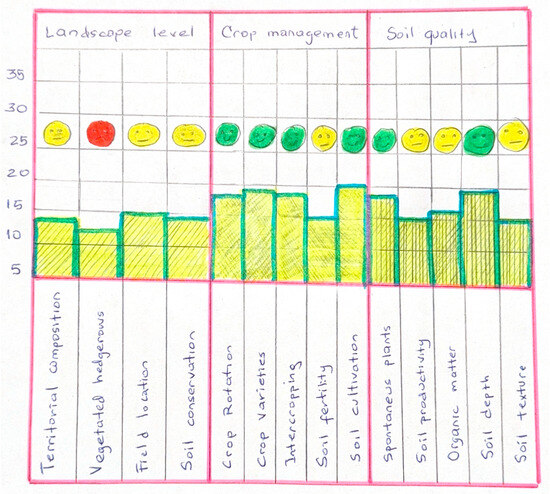 Landscape level
Crop management
Soil quality
35
30
25
20
15
10
5
Territorial composition
Vegetated hedgerows
Field location
Soil conservation
Crop Rotation
Crop varieties
Intercropping
Soil fertility
Soil cultivation
Spontaneus plants
Soil productivity
Organic matter
Soil depth
Soil texture